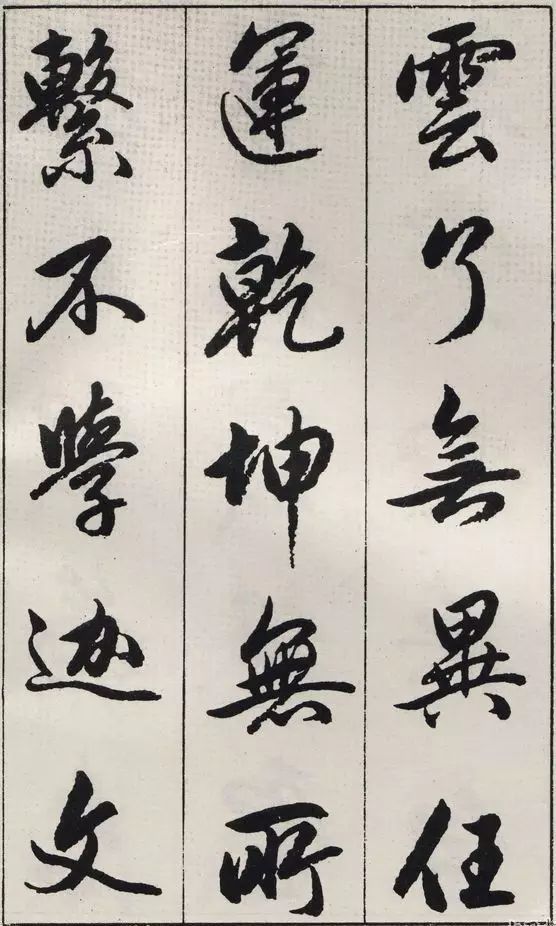 雲了無異任
運乾坤無所
繫不學边文